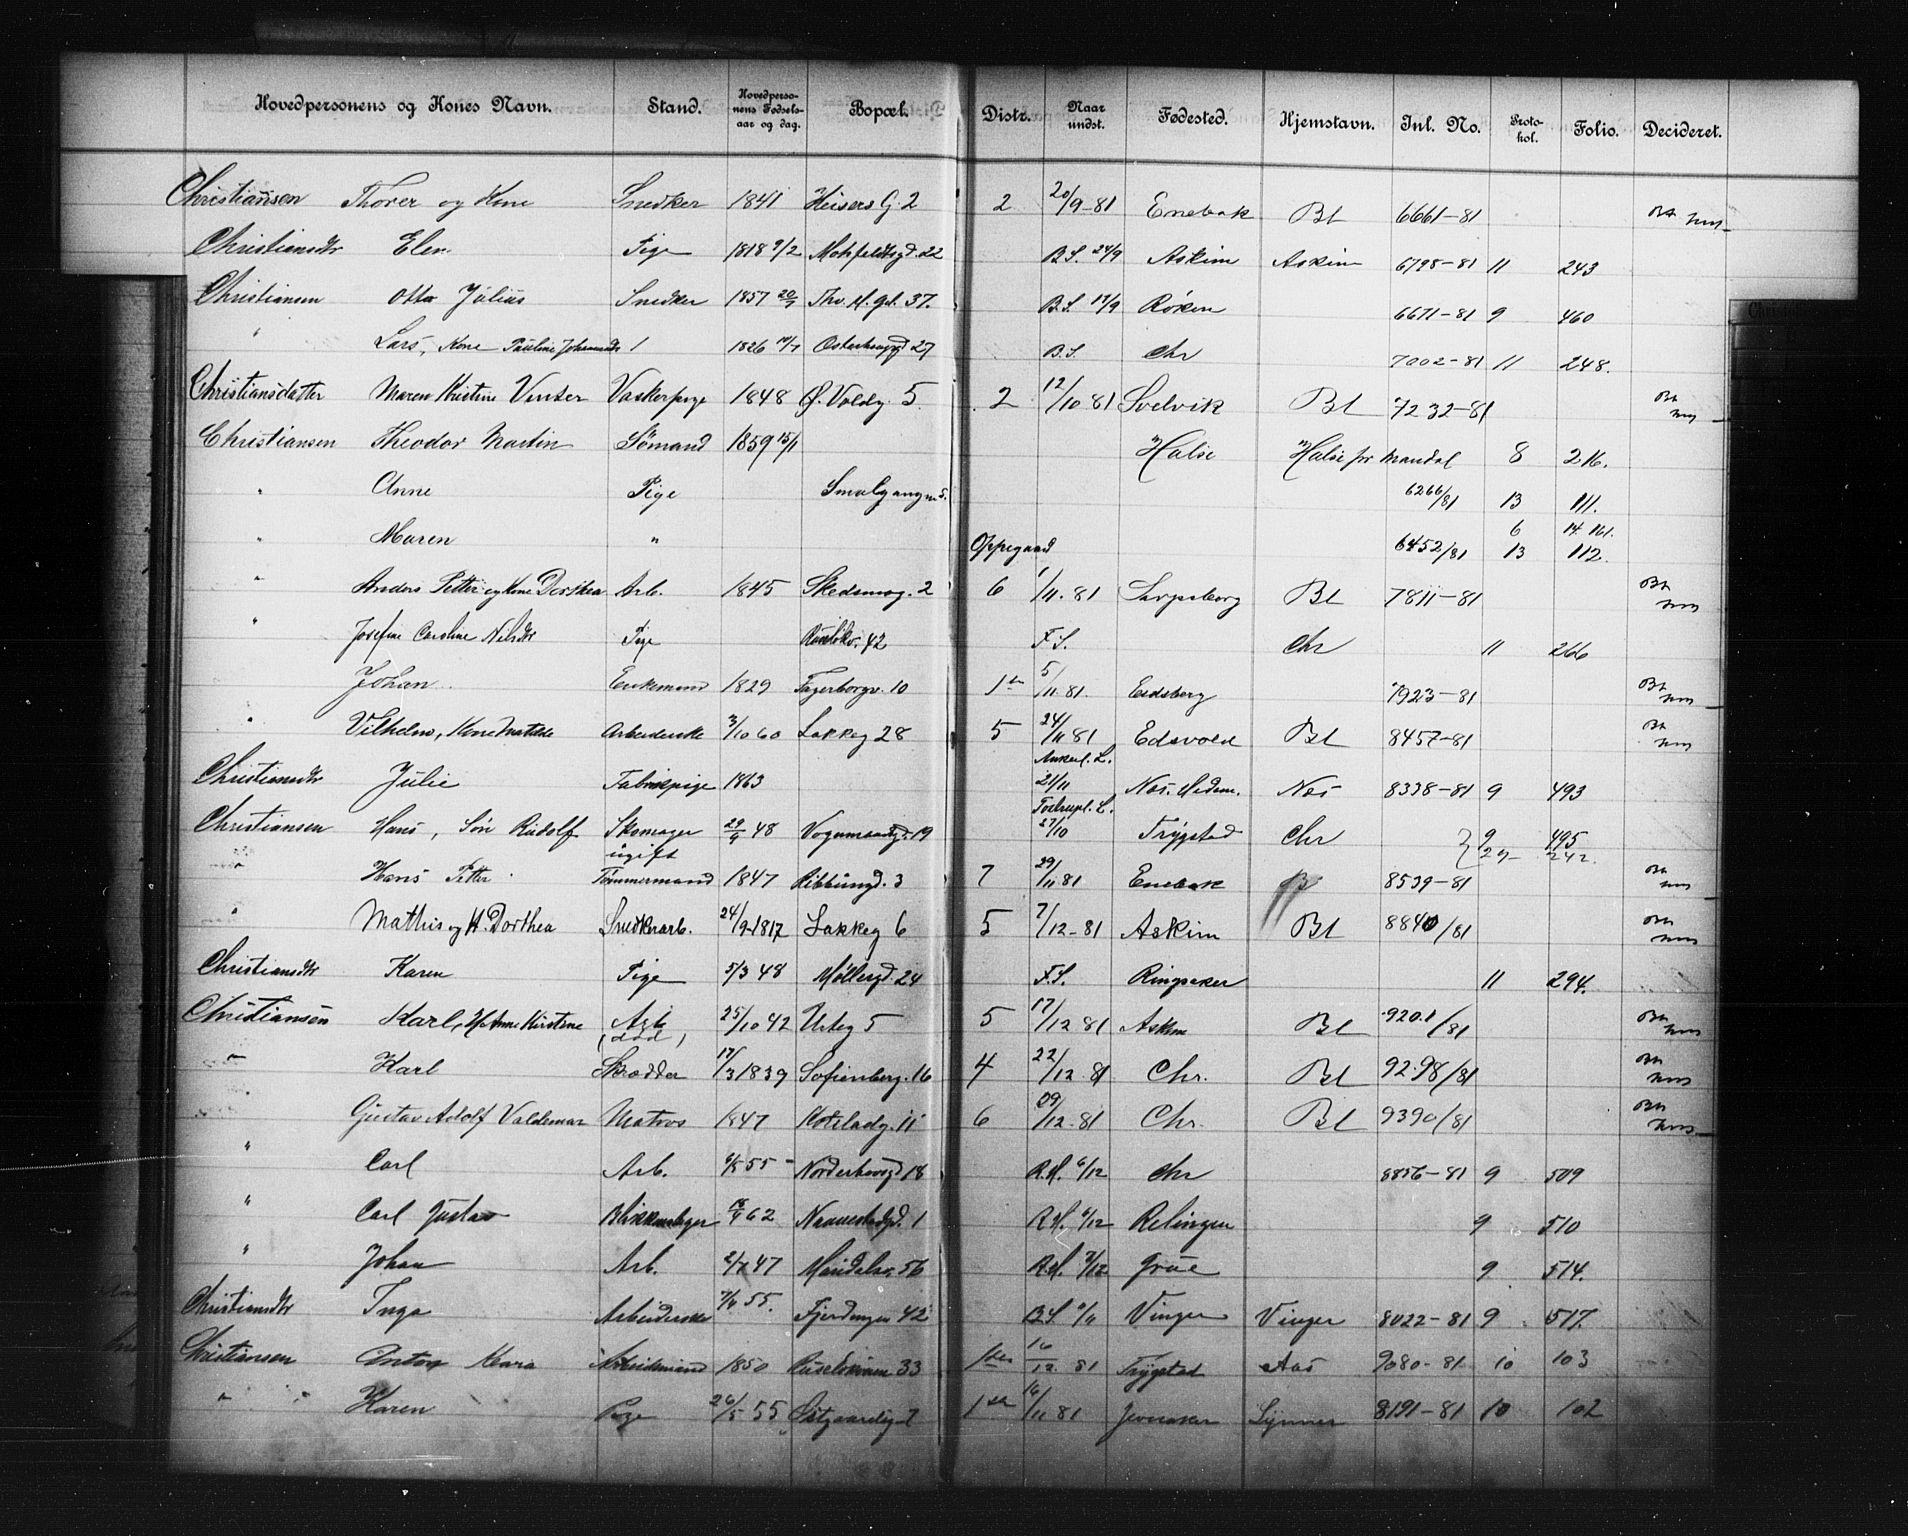 Hovedpersonens og Kones Navn. Stand. Hovedpersonens Fødselsaar og dag. Bopæl. Distr. Naar undst. Fødested. Hjemstavn. Inl. No. Protokol. Folio. Decideret.
Christiansen Thorer og Kone Snedker 1841 Heisers G. 2 2 20/9-81 Enebak Bl 6661-81
Christiansdtr Elen Pige 1818 9/2 22 B.S. 24/9 Askim Askim 6798-81 11 243
Christiansen Otto Julius Snedker 1857 Thv. M. gd. 37. B.S. 17/9 Røken 6671-81 9 460
" Lars, Kone Pauline 1826 27 B.S. Chr 7002-81 11 248.
Christiansdatter Maren Kristine Vaskerpige 1848 Ø. Voldg. 5. 2 12/10 81 Svelvik Bl 7232-81
Christiansen Theodor Martin Sømand 1859 15/1 Halse Halse pr Mandal 8 216.
" Anne Pige Smalgangen 5. 6266/81 13 111.
" Maren " Oppegaard 6452/81 6 13 14. 161. 112.
" Anders Petter og Kone Dorthea Arb. 1845 Skedsmog. 2 6 1/11. 81 Sarpsborg Bl 7811-81
" Josefine Caroline Nilsdtr Pige 42 F.S. Chr 11 266
Johan Enkemand 1829 Fagerborgv. 10 1ste 5/11. 81 Eidsberg 7923-81
" Vilhelm, Kone Matilde Arbeiderske 3/10 60 Lakkeg 28 5 24/11 81 Edsvold Bl 8457-81
Christiansdtr Julie Fabrikpige 1863 Ankerl. L. 21/11 Nes. Hedem. Nes 8338-81 9 493
Christiansen Hans, Søn Rudolf Skomager ugift 29/9 48 19 L. 27/10 Trygstad Chr 9 495
" Hans Petter Tømmermand 1847 Ribbungd. 3 7 29/11 81 Enebak 8539-81
" Mathis og H. Dorthea Snedkerarb. 24/9-1817 Lakkeg 6 5 7/12-81 Askim Bl 8840/81
Christiansdtr Karen Pige 5/3 48 Møllergd 24 F.S. Ringsaker 11 294.
Christiansen Karl, H Anne Kirstine Arb (død) 25/10 42 Urteg 5 5 17/12 81 Askim Bl 9201/81
" Karl Skrædder 17/3 1839 Sofienberg. 16 4 22/12 81 Chr. Bl 9298/81
Gustav Adolf Valdemar Matros 1847 11 6 29/12. 81 Chr. Bl 9390/81
" Carl Arb. 6/5 55 Norderhovsgd 18 R.H. 6/12 Chr 8856-81 9 509
" Carl Gustav Blikkenslager 62 1 R.H. 6/12 Relingen 9 510
" Johan Arb. 2/7 47 Maridalsv. 56 R.H. 7/12 Grue 9 514.
Christiansdtr Inga Arbeiderske 7/9 55. Fjerdingen 42 B.S. Vinger Vinger 8022-81 9 517.
Christiansen Anton Arbeidsmand 1850 33 1ste 16/12. 81 Trygstad Aas 9080-81 10 103
" " Karen Pige 26/5 55 7 1ste 16/11 81 Jevnaker 8191-81 10 102